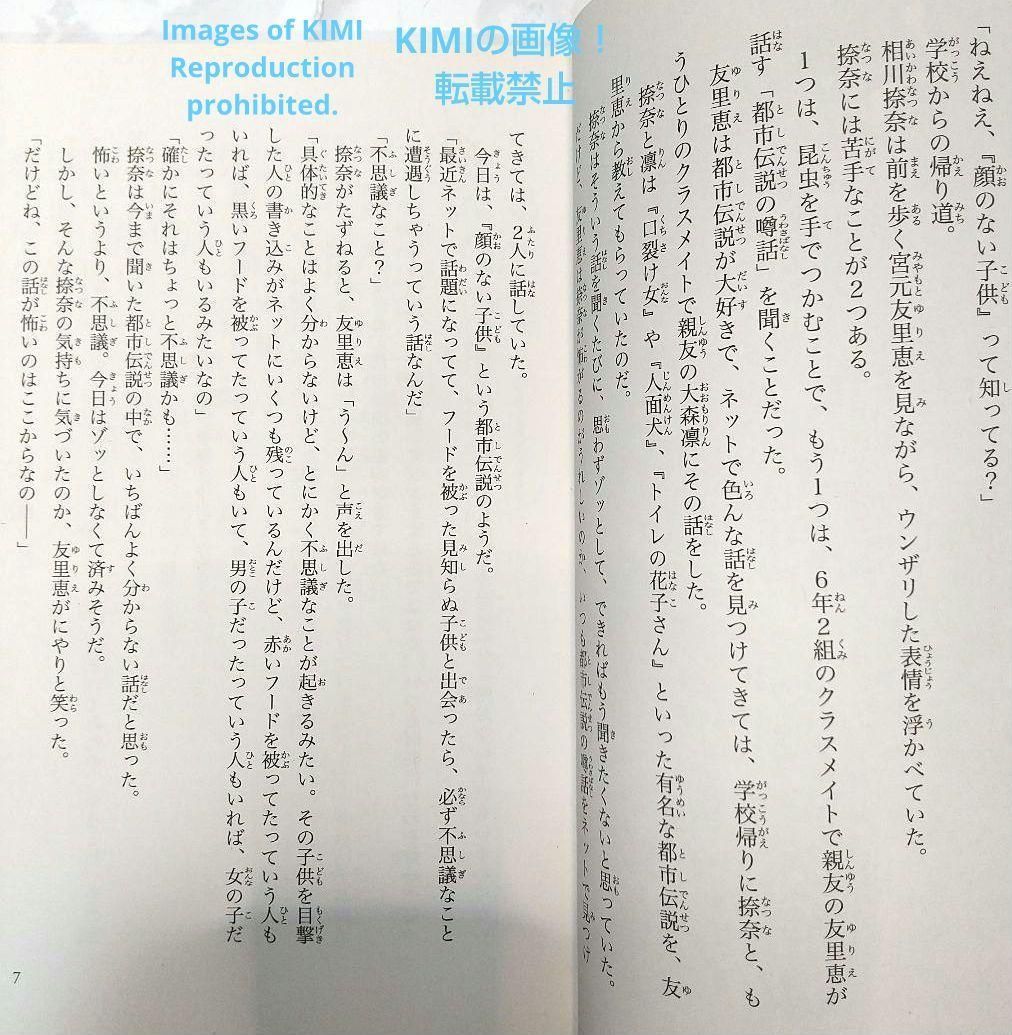 Images of KIMI
Reproduction
prohibited.
KIMIの画像！
転載禁止
「ねえねえ、『顔のない子供』って知ってる？」
学校からの帰り道。
相川捺奈は前を歩く宮元友里恵を見ながら、ウンザリした表情を浮かべていた。
捺奈には苦手なことが２つある。
１つは、昆虫を手でつかむことで、もう１つは、６年２組のクラスメイトで親友の友里恵が
話す「都市伝説の噂話」を聞くことだった。
友里恵は都市伝説が大好きで、ネットで色んな話を見つけてきては、学校帰りに捺奈と、も
うひとりのクラスメイトで親友の大森凛にその話をした。
捺奈と凛は『口裂け女』や『人面犬』、『トイレの花子さん』といった有名な都市伝説を、友
里恵から教えてもらっていたのだ。
捺奈はそういう話を聞くたびに、思わずゾッとして、できればもう聞きたくないと思っていた。
だけど、友里恵は捺奈が怖がるのがうれしいのか、いつも都市伝説の噂話をネットで見つけ
てきては、２人に話していた。
今日は、『顔のない子供』という都市伝説のようだ。
「最近ネットで話題になってて、フードを被った見知らぬ子供と出会ったら、必ず不思議なこと
に遭遇しちゃうっていう話なんだ」
「不思議なこと？」
捺奈がたずねると、友里恵は「う～ん」と声を出した。
「具体的なことはよく分からないけど、とにかく不思議なことが起きるみたい。その子供を目撃
した人の書き込みがネットにいくつも残っているんだけど、赤いフードを被ってたっていう人も
いれば、黒いフードを被ってたっていう人もいて、男の子だったっていう人もいれば、女の子だ
ったっていう人もいるみたいなの」
「確かにそれはちょっと不思議かも……」
捺奈は今まで聞いた都市伝説の中で、いちばんよく分からない話だと思った。
怖いというより、不思議。今日はゾッとしなくて済みそうだ。
しかし、そんな捺奈の気持ちに気づいたのか、友里恵がにやりと笑った。
「だけどね、この話が怖いのはここからなの――」
7